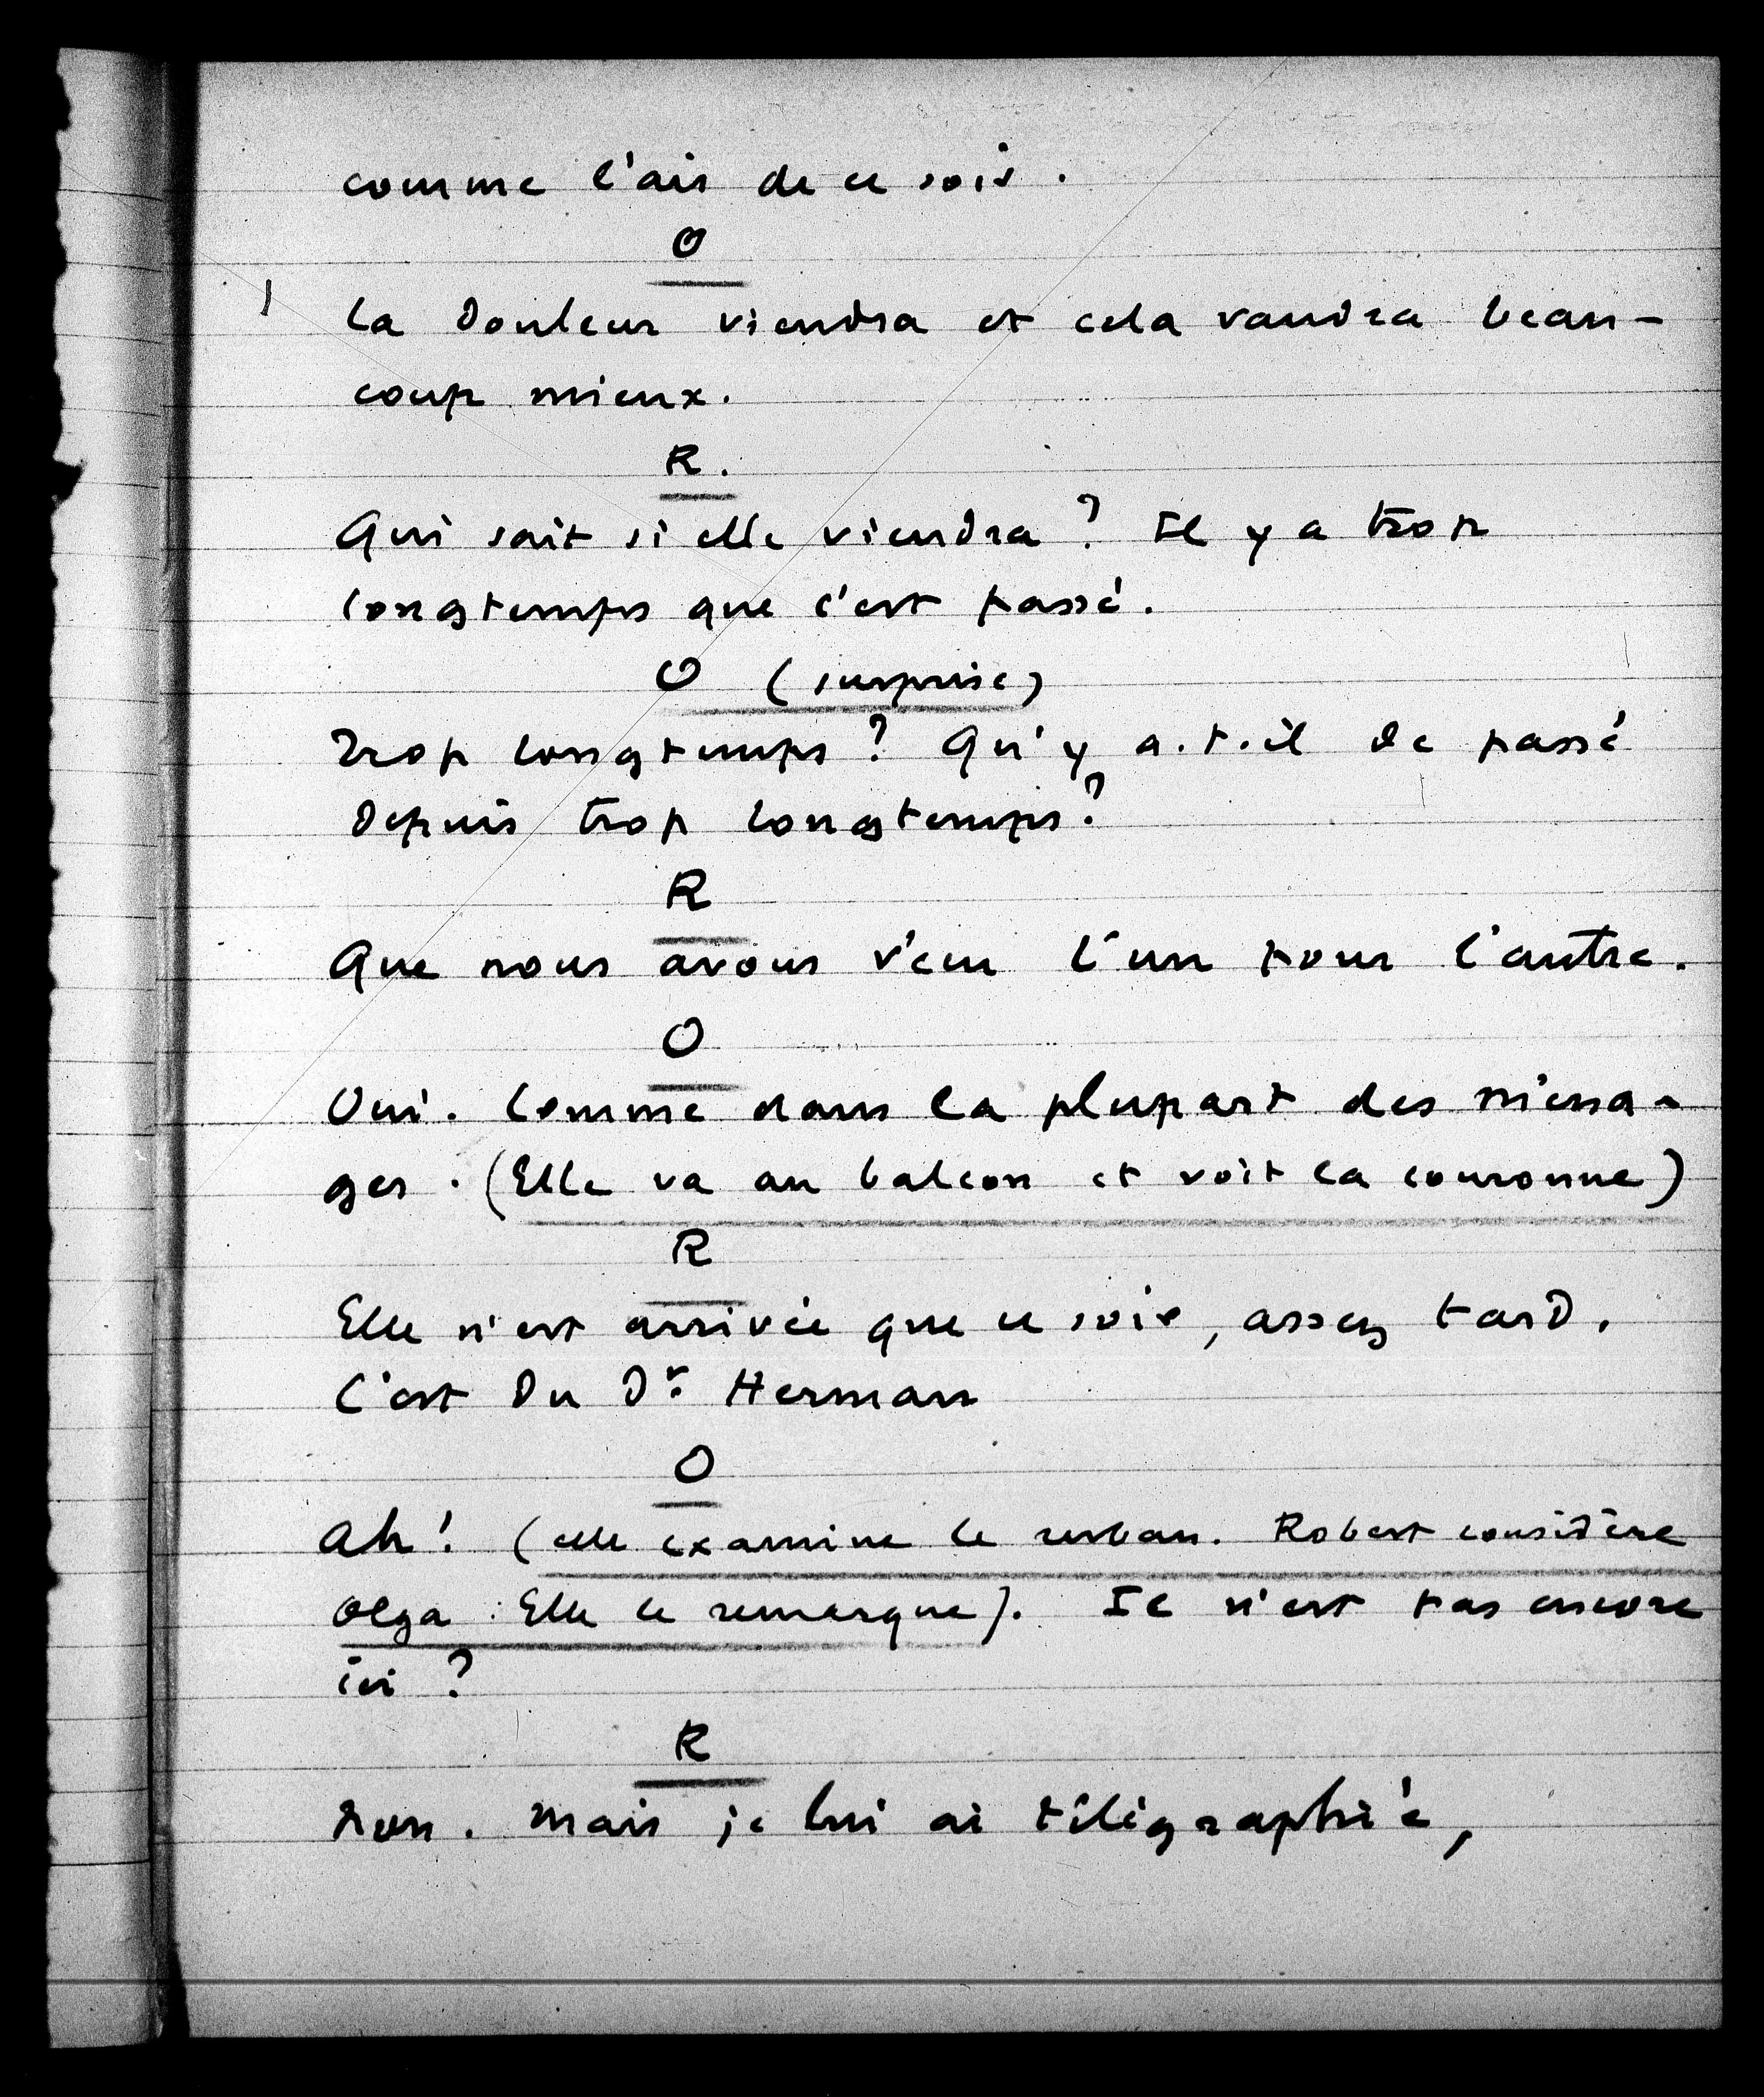 comme l'air de ce soir.
O
La douleur viendra et cela vaudra beau-
coup mieux.
R.
Qui sait si elle viendra ? Il y a trop
longtemps que c'est passé.
O (surprise)
Trop longtemps ? Qu'y a.t.il de passé
depuis trop longtemps ?
R
Que nous avons vécu l'un pour l'autre.
O
Oui. Comme dans la plupart des ména-
ges. (Elle va au balcon et voit la couronne)
R
Elle n'est arrivée que ce soir, assez tard.
C'est du Dr. Herman
O
Ah ! (elle examine le ruban. Robert considère
Olga : Elle le remarque). Il n'est pas encore
ici ?
R
Non. Mais je lui ai télégraphié,